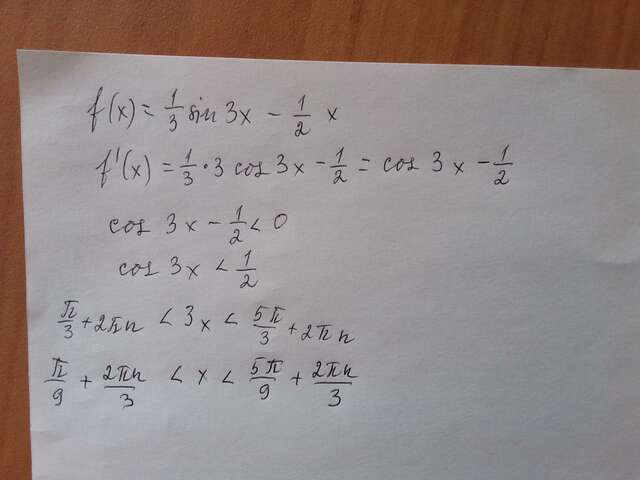 f(x) = 1/3 sin 3x - 1/2 x
f'(x) = 1/3 · 3 cos 3x - 1/2 = cos 3x - 1/2
cos 3x - 1/2 < 0
cos 3x < 1/2
π/3 + 2πn < 3x < 5π/3 + 2πn
π/9 + 2πn/3 < x < 5π/9 + 2πn/3